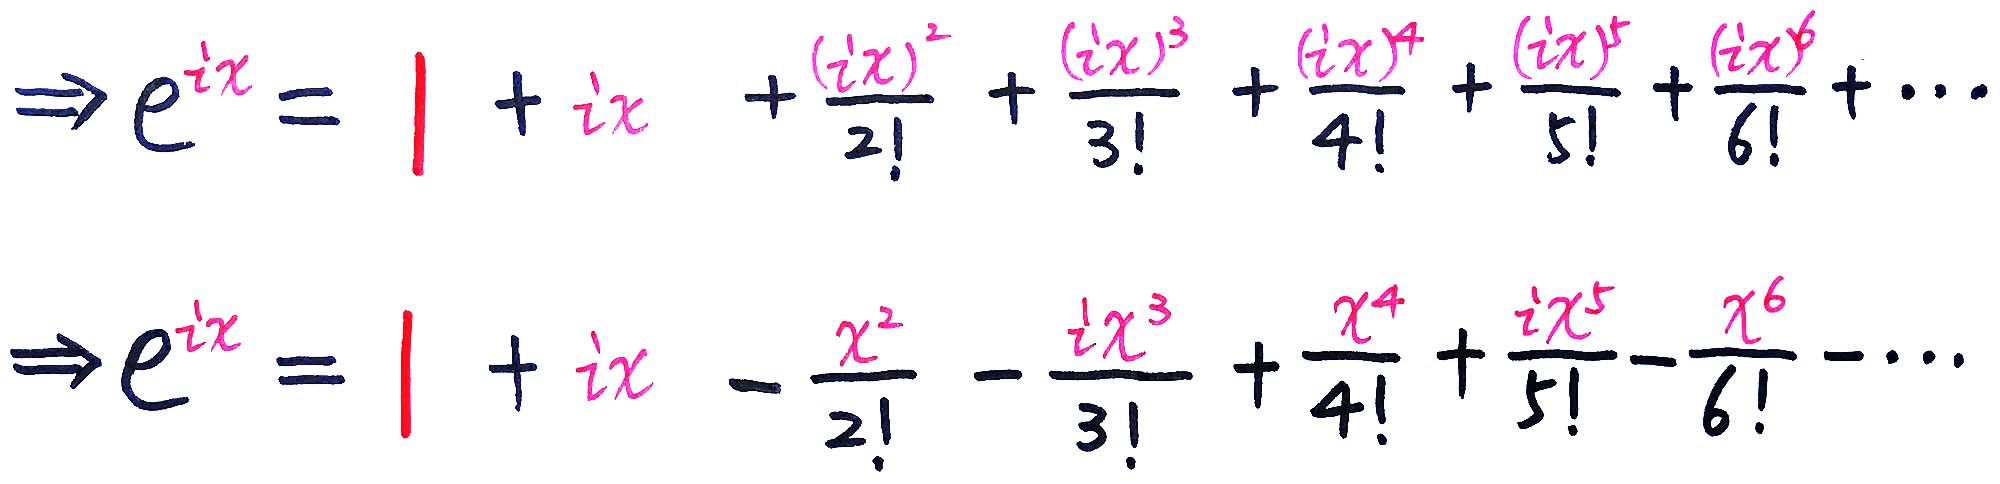 ⇒ e^{ix} = 1 + ix + \frac{(ix)^2}{2!} + \frac{(ix)^3}{3!} + \frac{(ix)^4}{4!} + \frac{(ix)^5}{5!} + \frac{(ix)^6}{6!} + ⋯
⇒ e^{ix} = 1 + ix - \frac{x^2}{2!} - \frac{ix^3}{3!} + \frac{x^4}{4!} + \frac{ix^5}{5!} - \frac{x^6}{6!} - ⋯